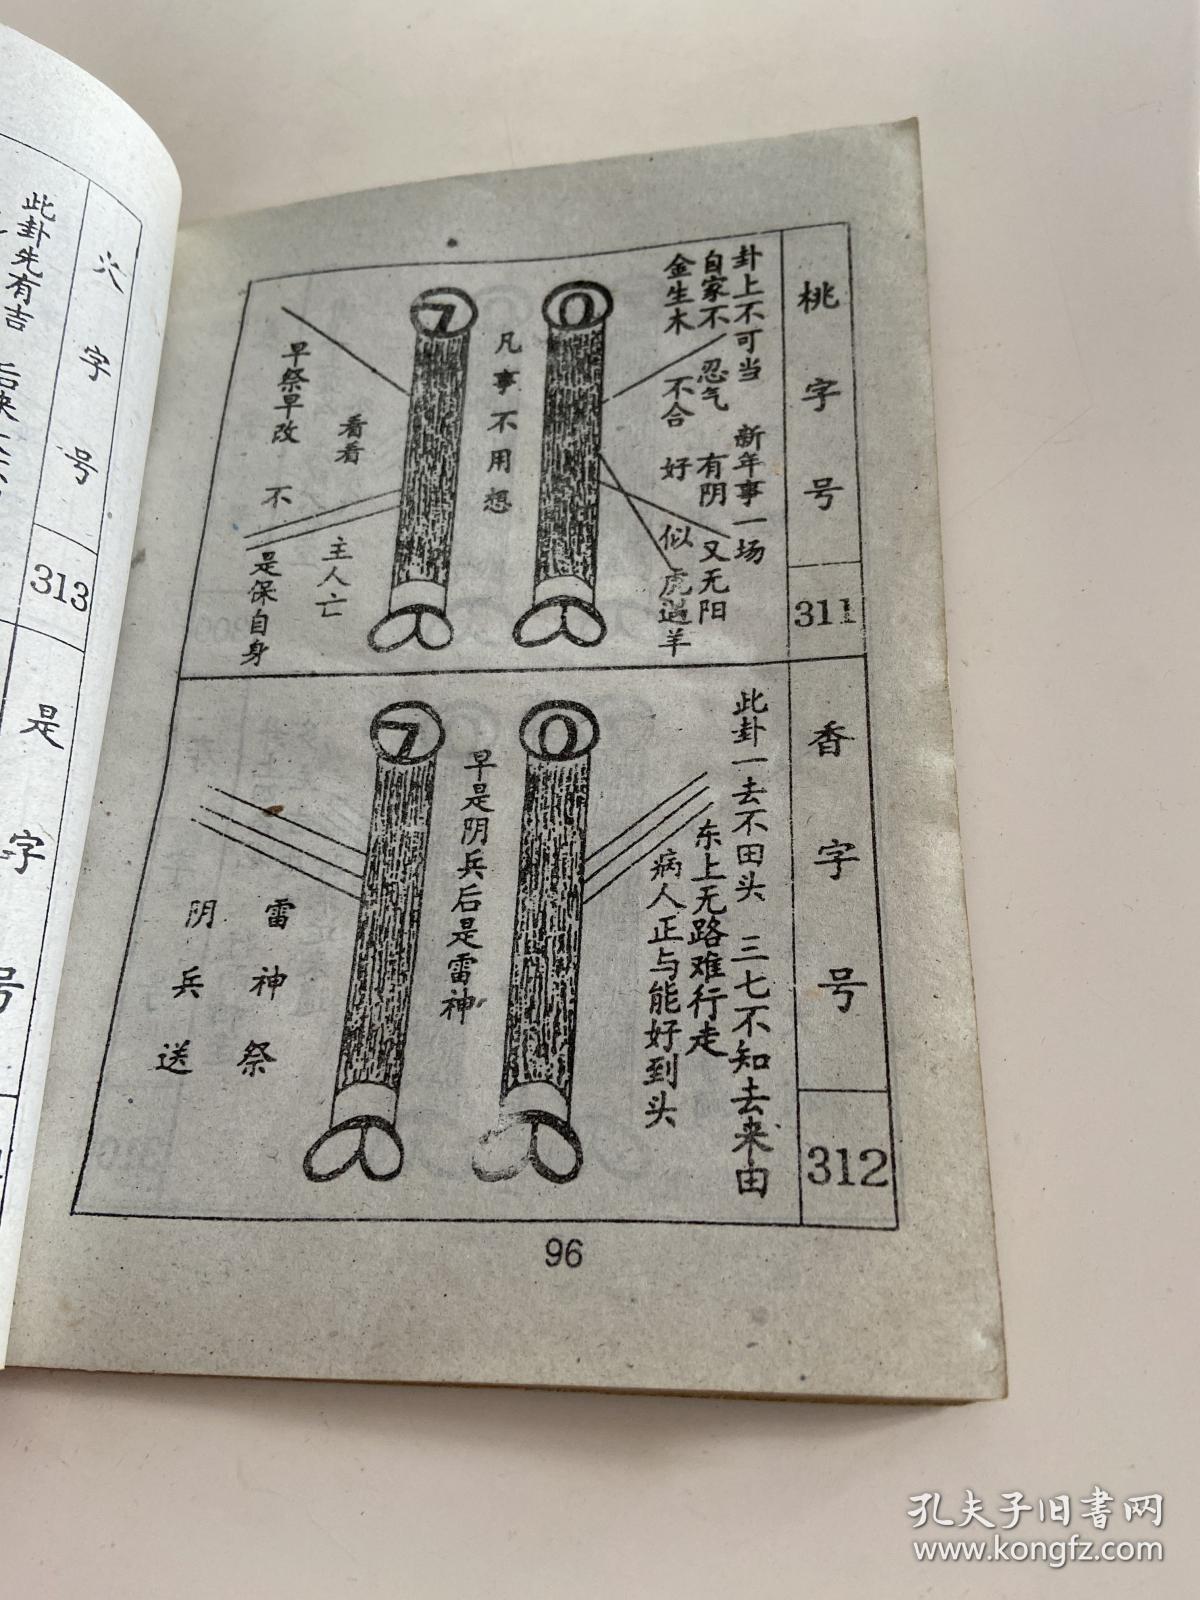 桃字号
311
卦上不可当 新年事一场
自家不忍气 有阴又无阳
金生木不合 好似虎遇羊
凡事不用想
看看主人亡
早祭早改 不是保自身
香字号
312
此卦一去不田头 三七不知去来由
东上无路难行走
病人正与能好到头
早是阴兵后是雷神
雷神祭
阴兵送
96
火字号
313
此卦先有吉
是字号
孔夫子旧书网
www.kongfz.com